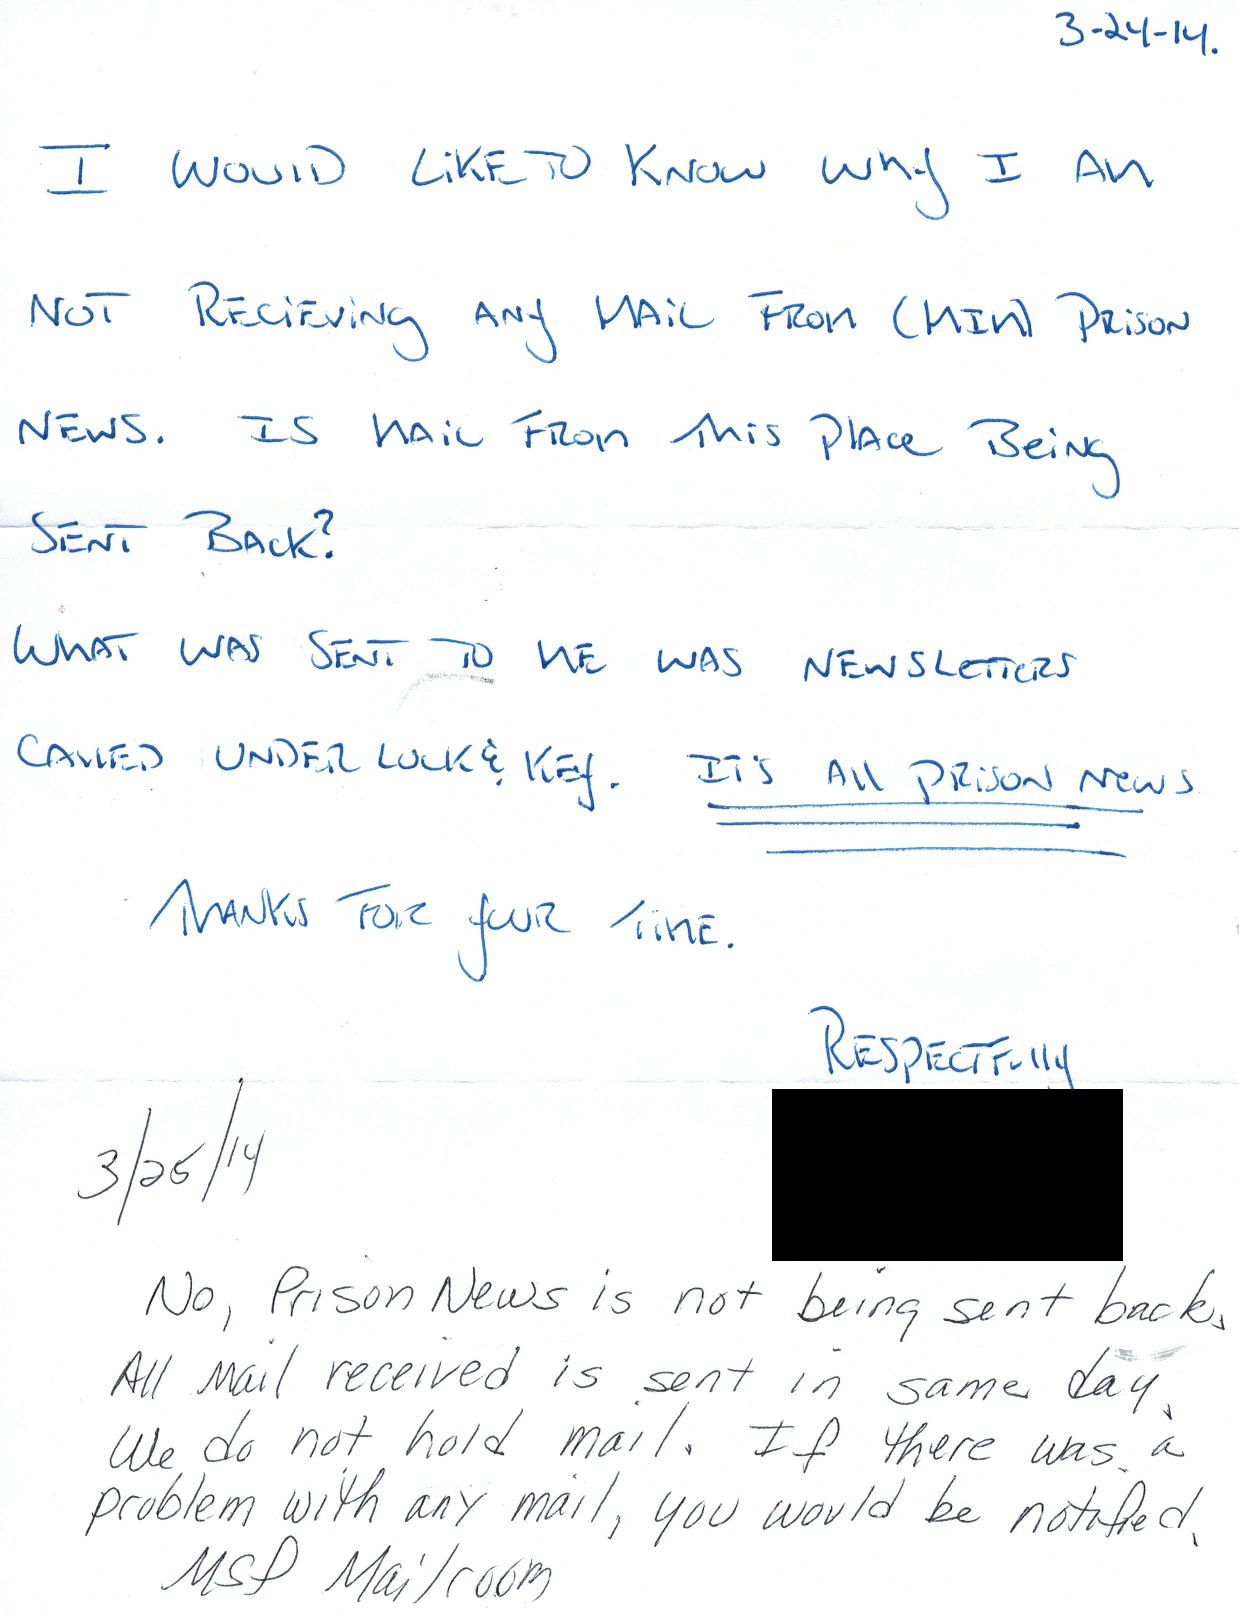 3-24-14.
I WOULD LIKE TO KNOW WHY I AM
NOT RECIEVING ANY MAIL FROM (MIM) PRISON
NEWS. IS MAIL FROM THIS PLACE BEING
SENT BACK?
WHAT WAS SENT TO ME WAS NEWSLETTERS
CALLED UNDER LOCK & KEY. IT'S ALL PRISON NEWS
THANKS FOR YOUR TIME.
RESPECTFULLY
3/25/14
No, Prison News is not being sent back.
All Mail received is sent in same day.
We do not hold mail. If there was a
problem with any mail, you would be notified.
MSP Mailroom